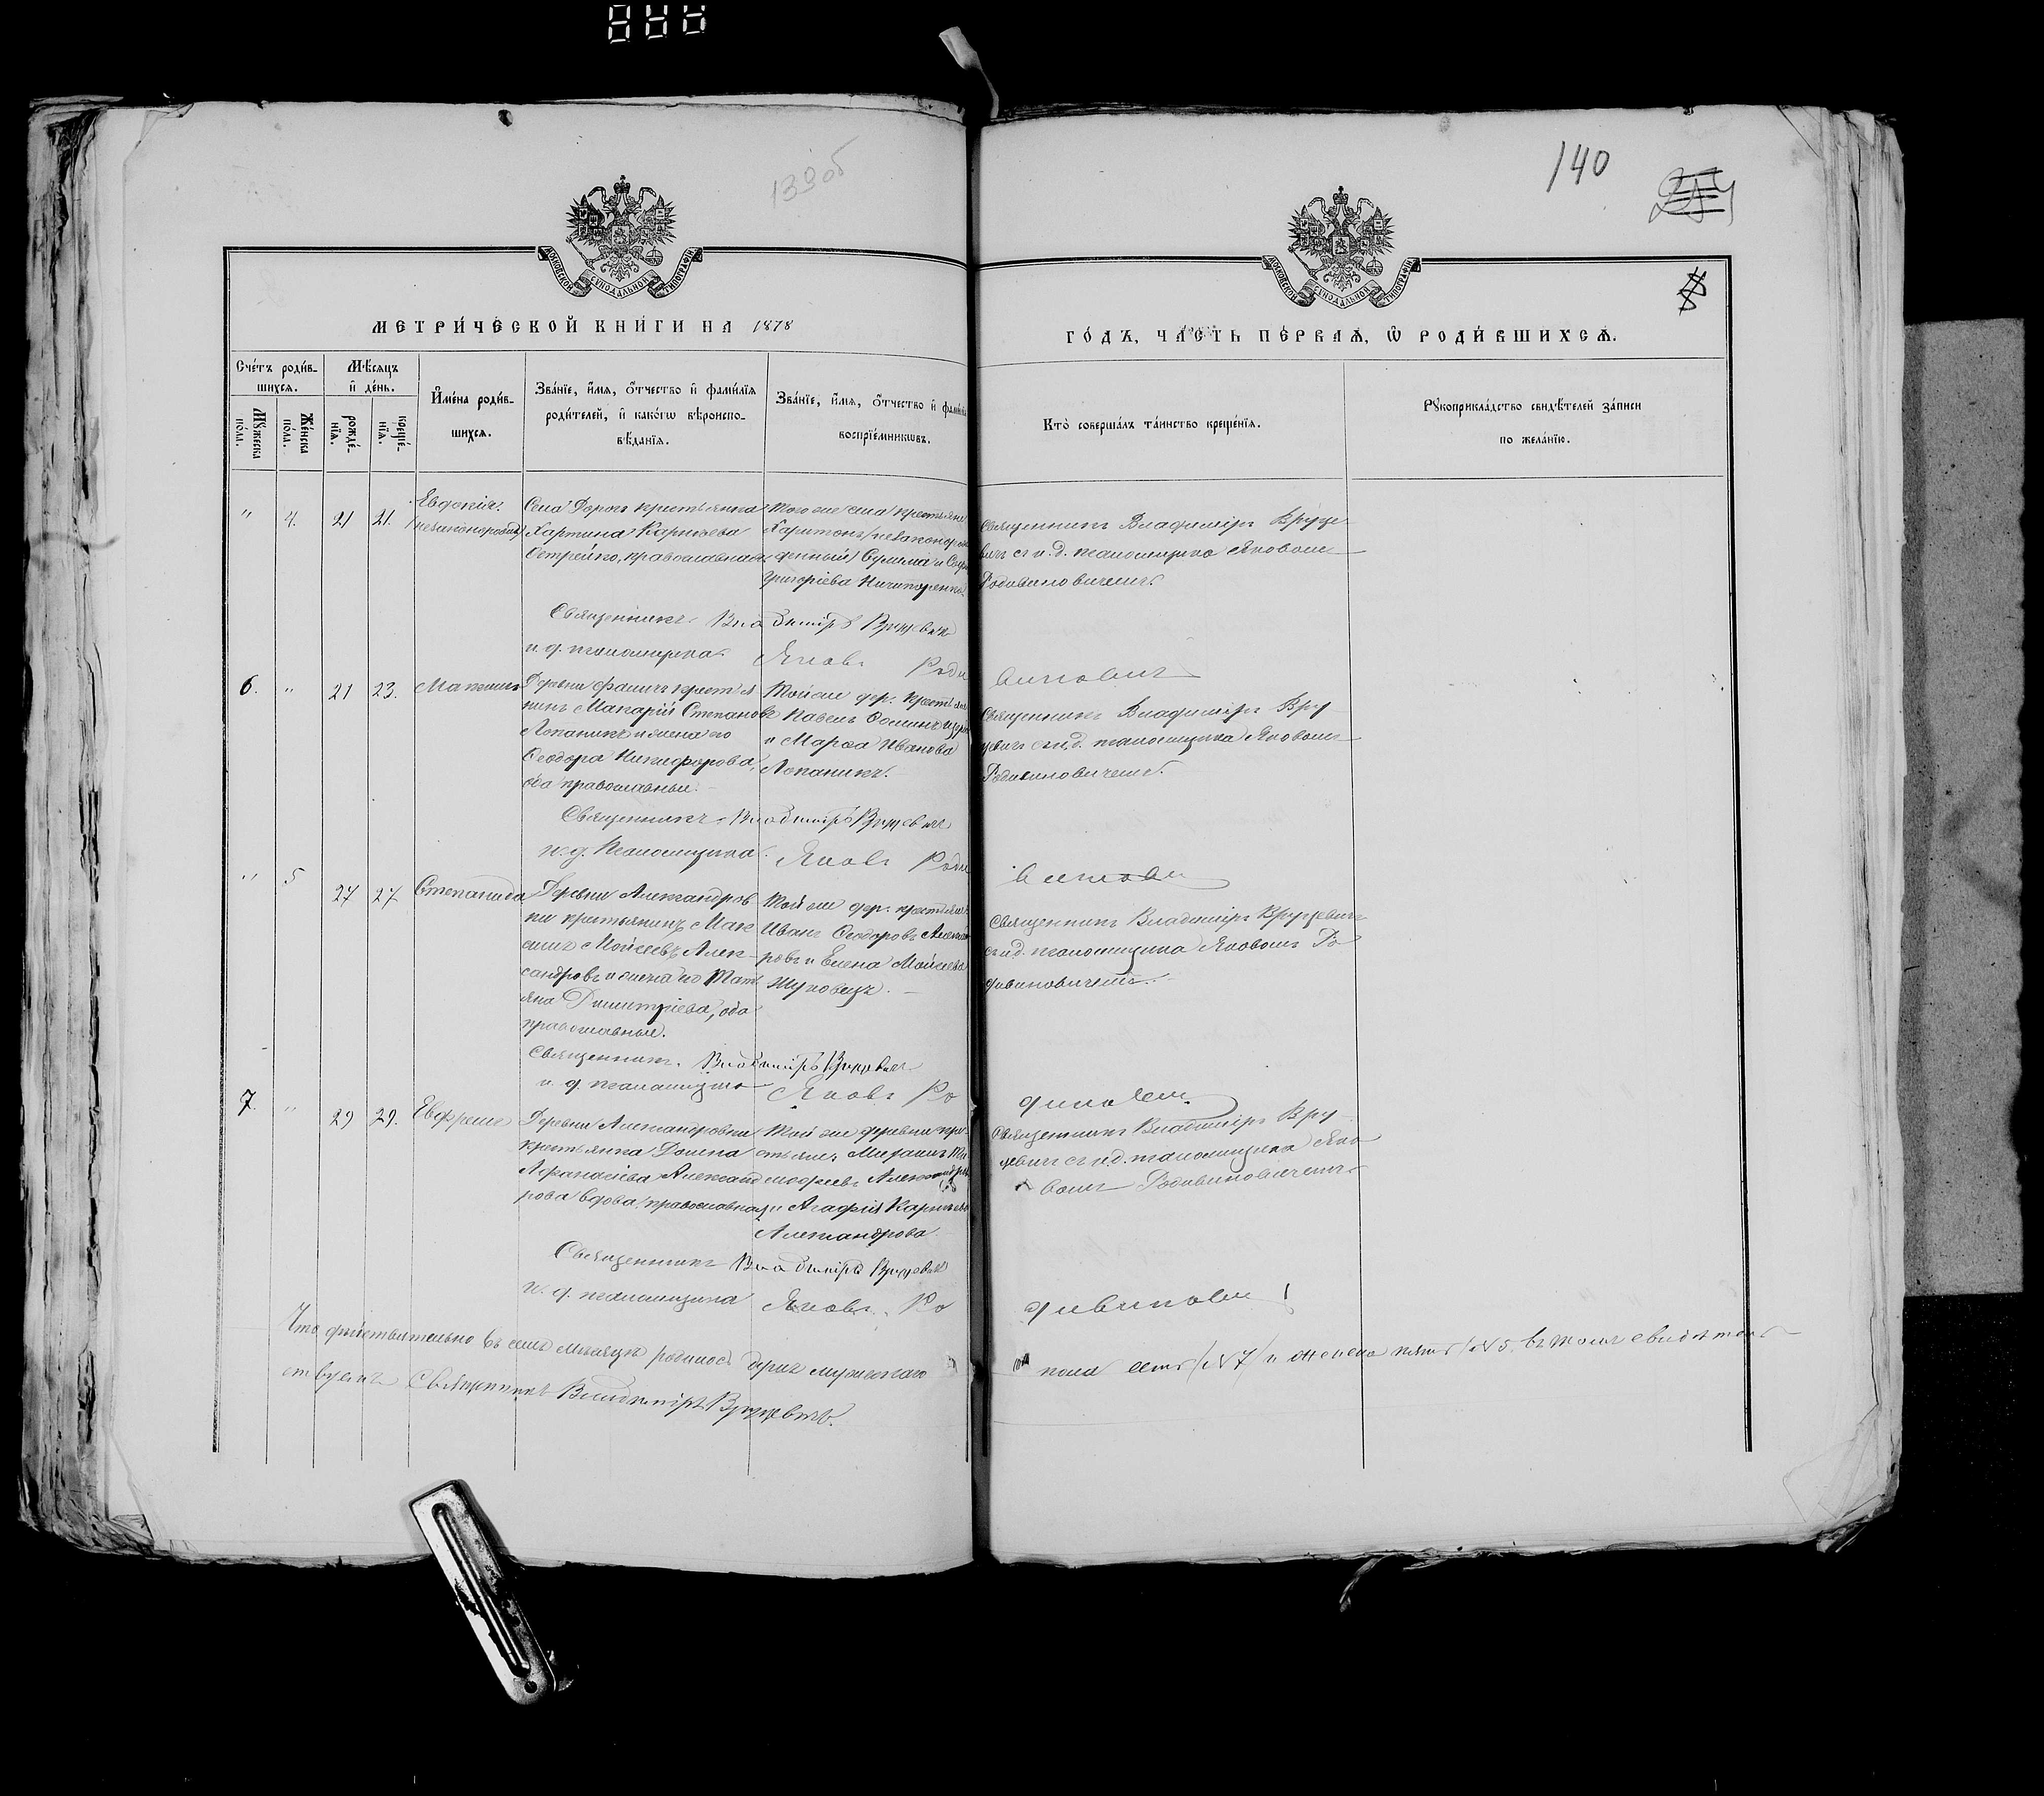 139об
140
МОСКОВСКОЙ СѴНОДАЛЬНОЙ ТИПОГРАФІИ
МОСКОВСКОЙ СѴНОДАЛЬНОЙ ТИПОГРАФІИ
МЕТРИ́ЧЕСКОЙ КНИ́ГИ НА 1878
ГО́ДЪ, ЧА́СТЬ ПЕ́РВАѦ, Ѡ РОДИ́ВШИХСѦ.
Сче́тъ роди́в-
шихся.
Мѣ́сяцъ
и҆ де́нь.
Мꙋ́жеска
по́ла.
Же́нска
по́ла.
рожде́-
нїѧ.
креще́-
нїѧ.
И҆мена̀ роди́в-
шихсѧ.
Зва́нїе, и҆́мѧ, ѻ҆́тчество и҆ фами́лїѧ
роди́телей, и҆ како́гѡ вѣ̀роиспо-
вѣ́данїѧ.
Зва́нїе, и҆́мѧ, ѻ҆́тчество и҆ фами́лїѧ
воспрїе́мникѡвъ.
Кто̀ соверша́лъ та́инство креще́нїѧ.
Рꙋкоприкла́дство свидѣ́телей за́писи
по жела́нїю.
" 4. 21 21. Евдокія (незаконорожд)
Села Дорогъ крестьянка
Харитина Карпова
православная
Того же села крестьяне
Харитонъ (незаконорож
денный) Сулима и
Григоріева Ничипоренко
Священникъ Владиміръ Вруце
вичъ съ и.д. псаломщика Яковомъ
Родивиновичемъ.
Священникъ Владиміръ Вруцевичъ
и. д. псаломщика Яковъ Родивиновичъ
6. " 21 23. Максимъ
Деревни крестья
нинъ Макарій Степановъ
Лопаникъ и жена его
Ѳеодора Никифорова,
оба православные.
Той же дер. крестьяне
Павелъ
и Марѳа Иванова
Лопаникъ.
Священникъ Владиміръ Вру
цевичъ съ и.д. псаломщика Яковомъ
Родивиновичемъ.
Священникъ Владиміръ Вруцевичъ
и. д. Псаломщика Яковъ Родивиновичъ
" 5 27 27 Степанида
Деревни Александров
ки крестьянинъ Мак
симъ Моисеевъ Алек
сандровъ и жена его Тать
яна Димитріева, оба
православные.
Той же дер. крестьяне
Иванъ Ѳеодоровъ Александ
ровъ и Елена Моисеева
Жуковецъ.
Священникъ Владиміръ Вруцевичъ
съ и.д. псаломщика Яковомъ Ро
дивиновичемъ.
Священникъ Владиміръ Вруцевичъ
и. д. псаломщика Яковъ Ро
7. " 29 29. Евфремъ
Деревни Александровки
крестьянка Домна
Афанасіева Александ
рова вдова, православная
Той же деревни кре
стьяне: Ти
мофеевъ Александров
и Агафія Карпова
Александрова
Священникъ Владиміръ Вру
цевичъ съ и.д. псаломщика Яко
вомъ Родивиновичемъ
Священникъ Владиміръ Вруцевичъ
и. д. псаломщика Яковъ Родивиновичъ
Что дѣйствительно въ семъ мѣсяцѣ родилось дѣтей мужескаго
пола семь (№ 7) и женска пять (№ 5. въ томъ свидѣтель
ствуемъ Священникъ Владиміръ Вруцевичъ.